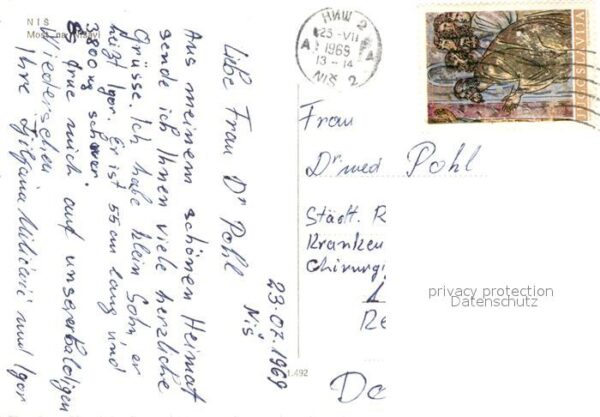 NIŠ
Most na Nišavi
23.07.1969
Niš
Liebe Frau Dr Pohl
Aus meinem schönen Heimat
sende ich Ihnen viele herzliche
Grüsse. Ich habe klein Sohn, er
heizt Igor. Er ist 55 cm lang und
3.800 kg schwer.
Es frue mich auf unser baldigen
Wiedersehen
Ihre Ljiljana Miličarić und Igor
НИШ 2
23-VII
1969
13-14
NIŠ 2
JUGOSLAVIJA
Frau
Dr med Pohl
Städt. R
Kranken
Chirurgi
Re
Do
privacy protection
Datenschutz
1.492